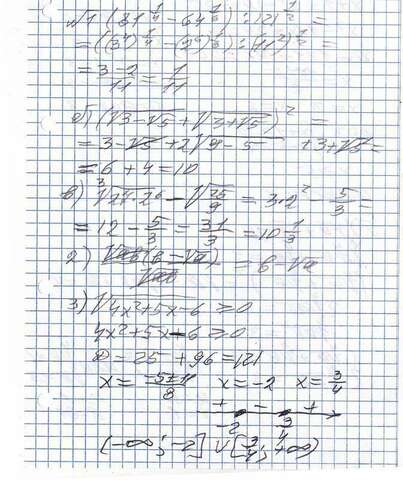 √1 (81^(1/4) - 64^(1/6)) : 121^(1/2) =
= ((3^4)^(1/4) - (2^6)^(1/6)) : (11^2)^(1/2) =
= (3-2)/11 = 1/11
б) (√(3-√5) + √(3+√5))^2 =
= 3-√5 + 2√(9-5) + 3+√5 =
= 6 + 4 = 10
в) ∛(27·2^6) - √(25/9) = 3·2^2 - 5/3 =
= 12 - 5/3 = 31/3 = 10 1/3
= в - √а
3) √(4x^2+5x-6) ≥ 0
4x^2+5x-6 ≥ 0
D = 25 + 96 = 121
x = (-5±11)/8 x = -2 x = 3/4
+ - +
-2 3/4
(-∞; -2] ∪ [3/4; +∞)